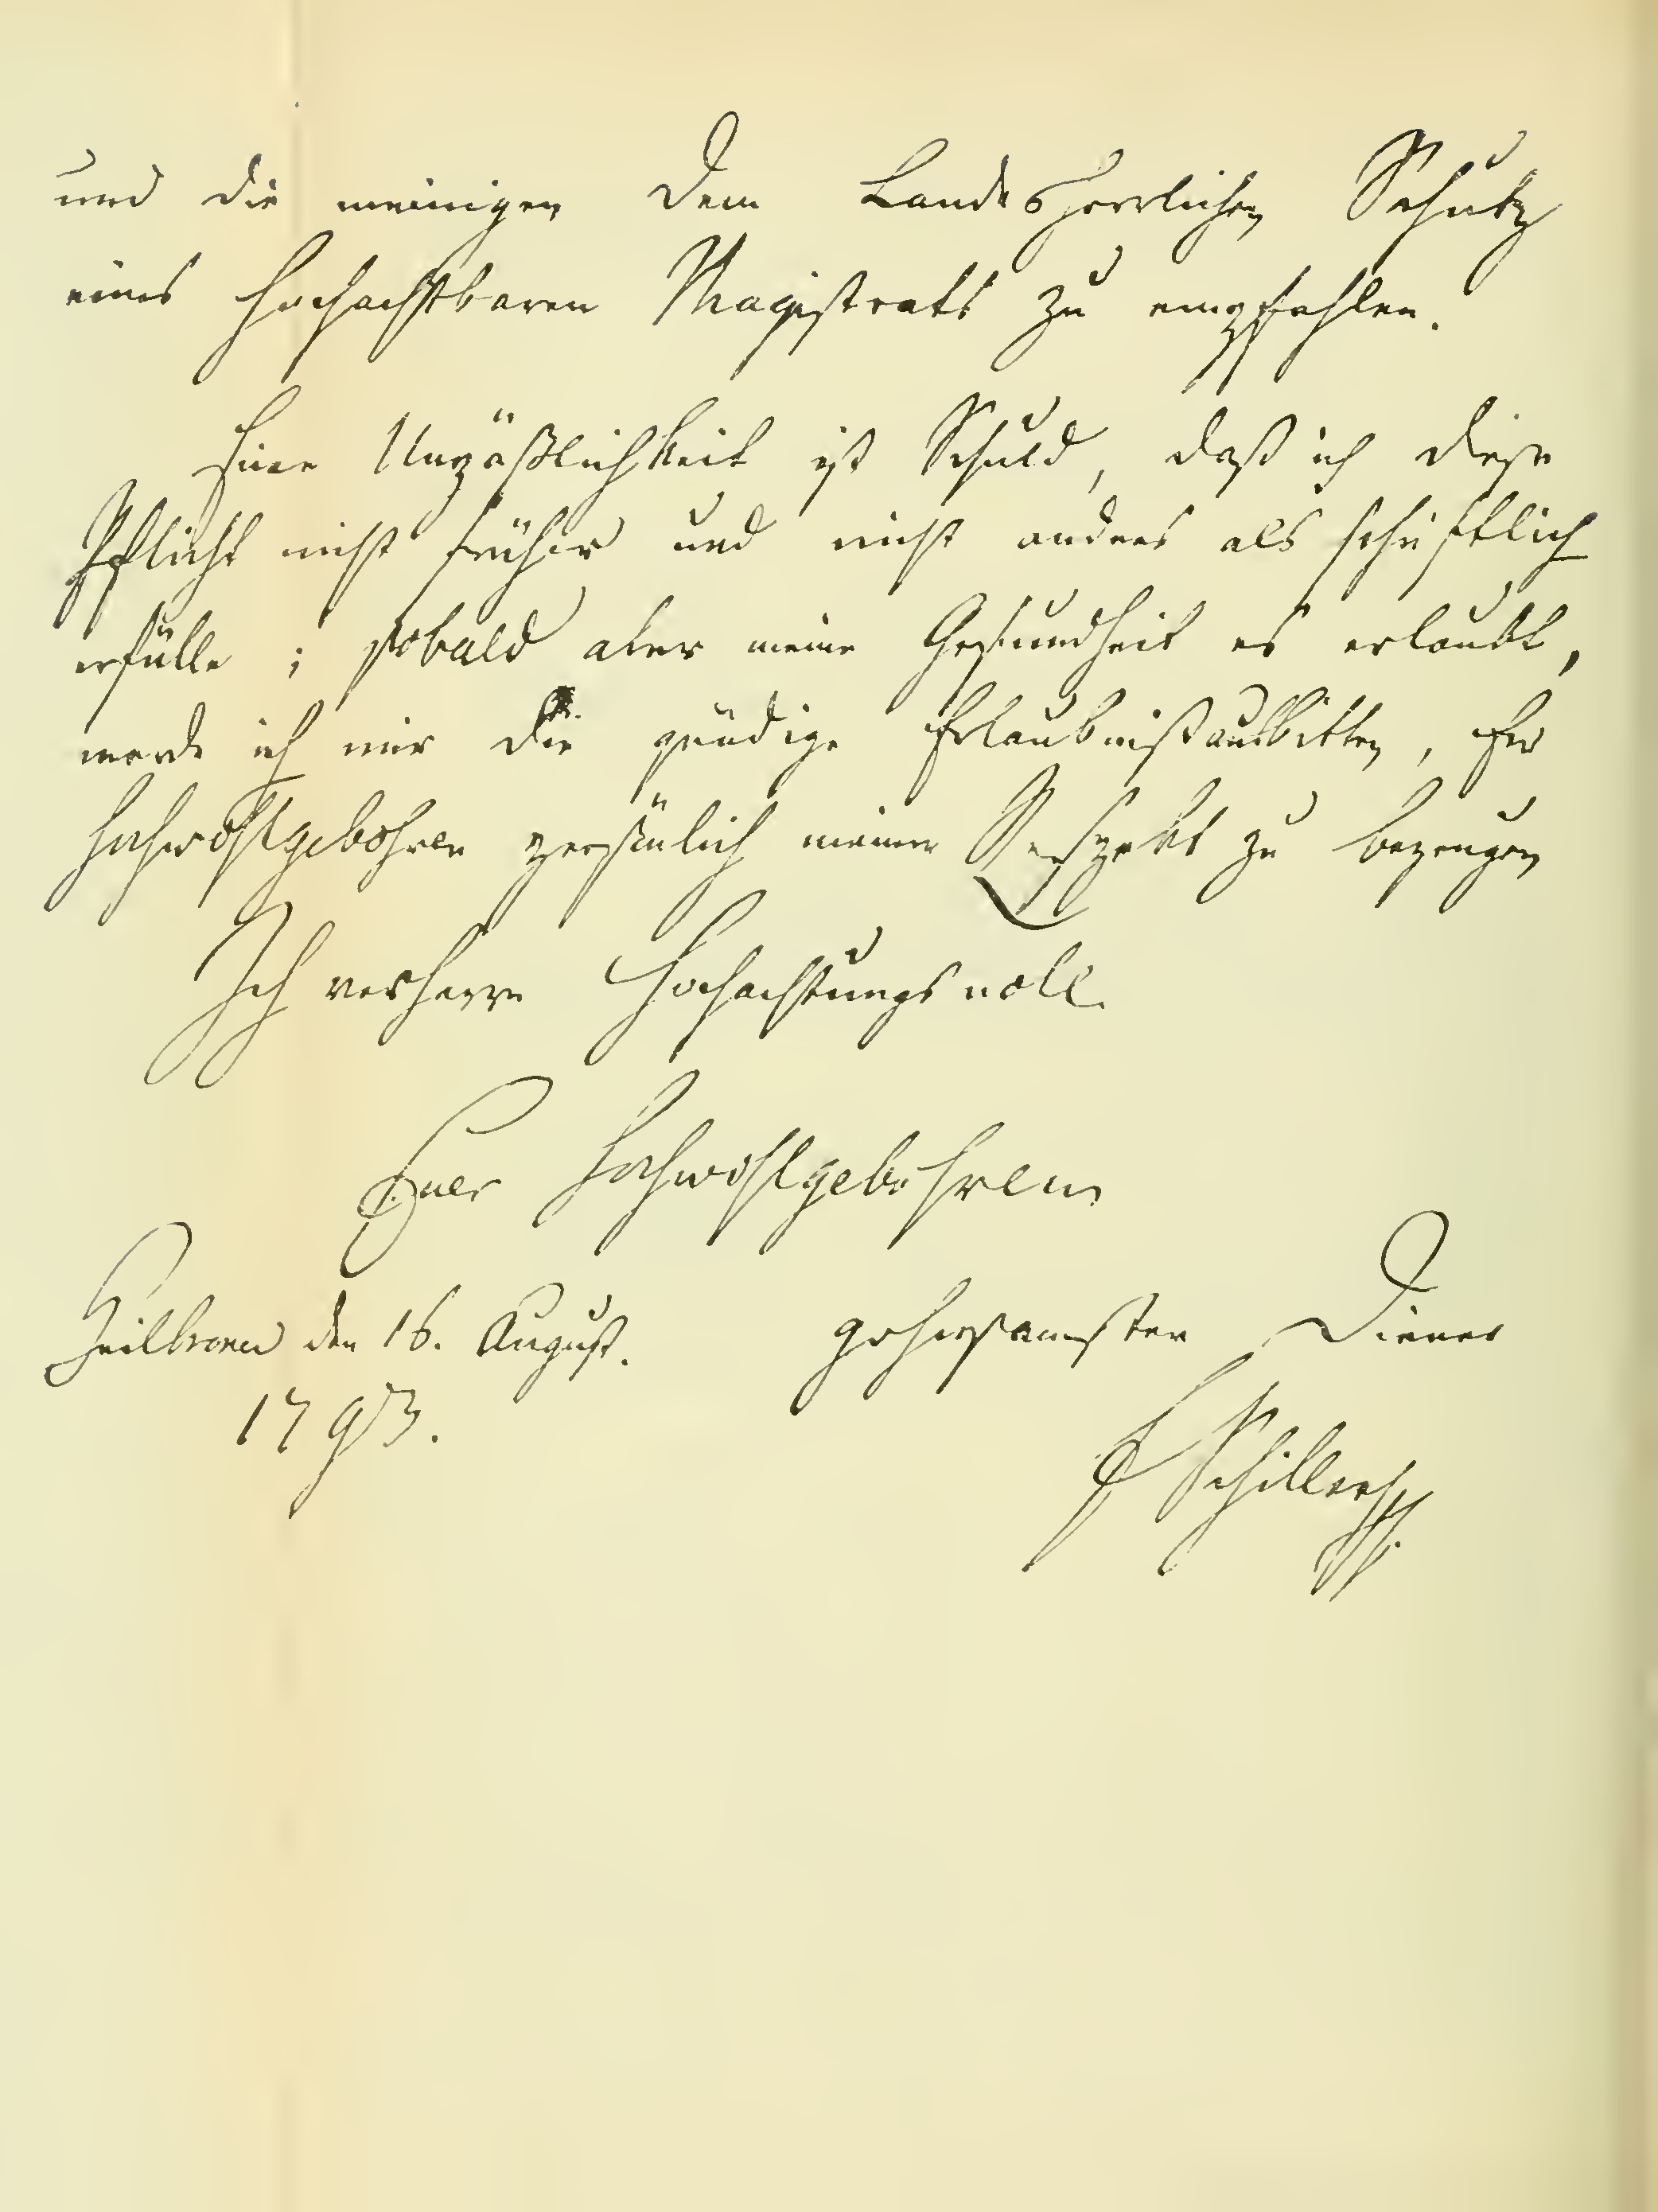 und die meinigen dem Landesherrlichen Schutz
eines hochachtbaren Magistrats zu empfehlen.
Eine Unpäßlichkeit ist Schuld, daß ich diese
Pflicht nicht früher und nicht anders als schriftlich
erfülle; sobald aber meine Gesundheit es erlaubt,
werde ich mir die gnädige Erlaubniß ausbitten, Eur
Hochwohlgebohren persönlich meinen Respekt zu bezeugen
Ich verharre hochachtungsvoll
Euer Hochwohlgebohren
Heilbronn den 16. August. gehorsamster Diener
1793.
F Schiller